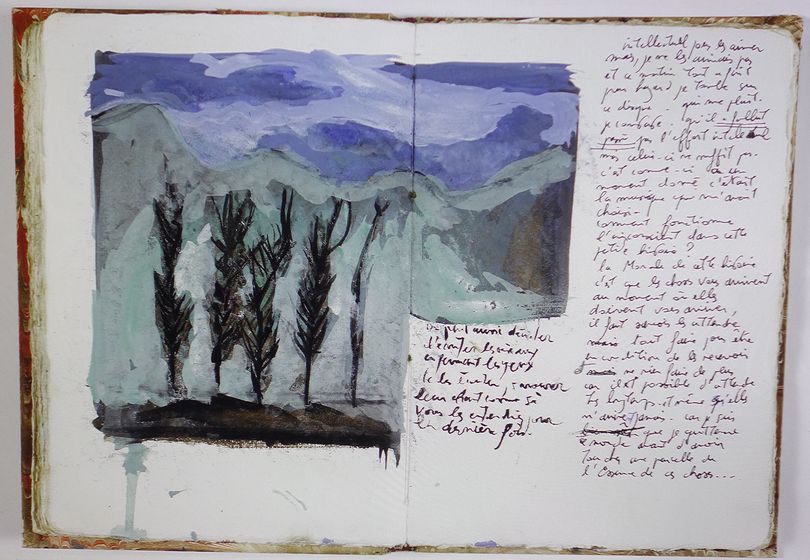 peut aussi décider
d'écouter les oiseaux
en fermant les yeux
de les écouter,
leur chant comme si
vous les entendiez pour
la dernière fois.
intellectuel pas les aimer
mais, je ne les aimais pas
et ce matin tout à fait
par hazard je tombe sur
ce disque - qui me plait.
je constate - qu'il a fallut
pas l'effort intellectuel
mais celui-ci ne suffit pas.
c'est comme-ci à un
moment donné c'était
la musique qui m'avait
choisi.
comment fonctionne
l'inconscient dans cette
petite histoire ?
la Morale de cette histoire
c'est que les choses vous arrivent
au moment où elles
doivent vous arriver,
il faut savoir les attendre
mais tout faire pour être
en condition de les recevoir
ne rien faire de plus
car il est possible d'attendre
très longtemps et même qu'elles
n'arrivent jamais. car je suis
que je quitterai
ce monde avant d'avoir
toucher une parcelle de
l'Essence de ces choses...